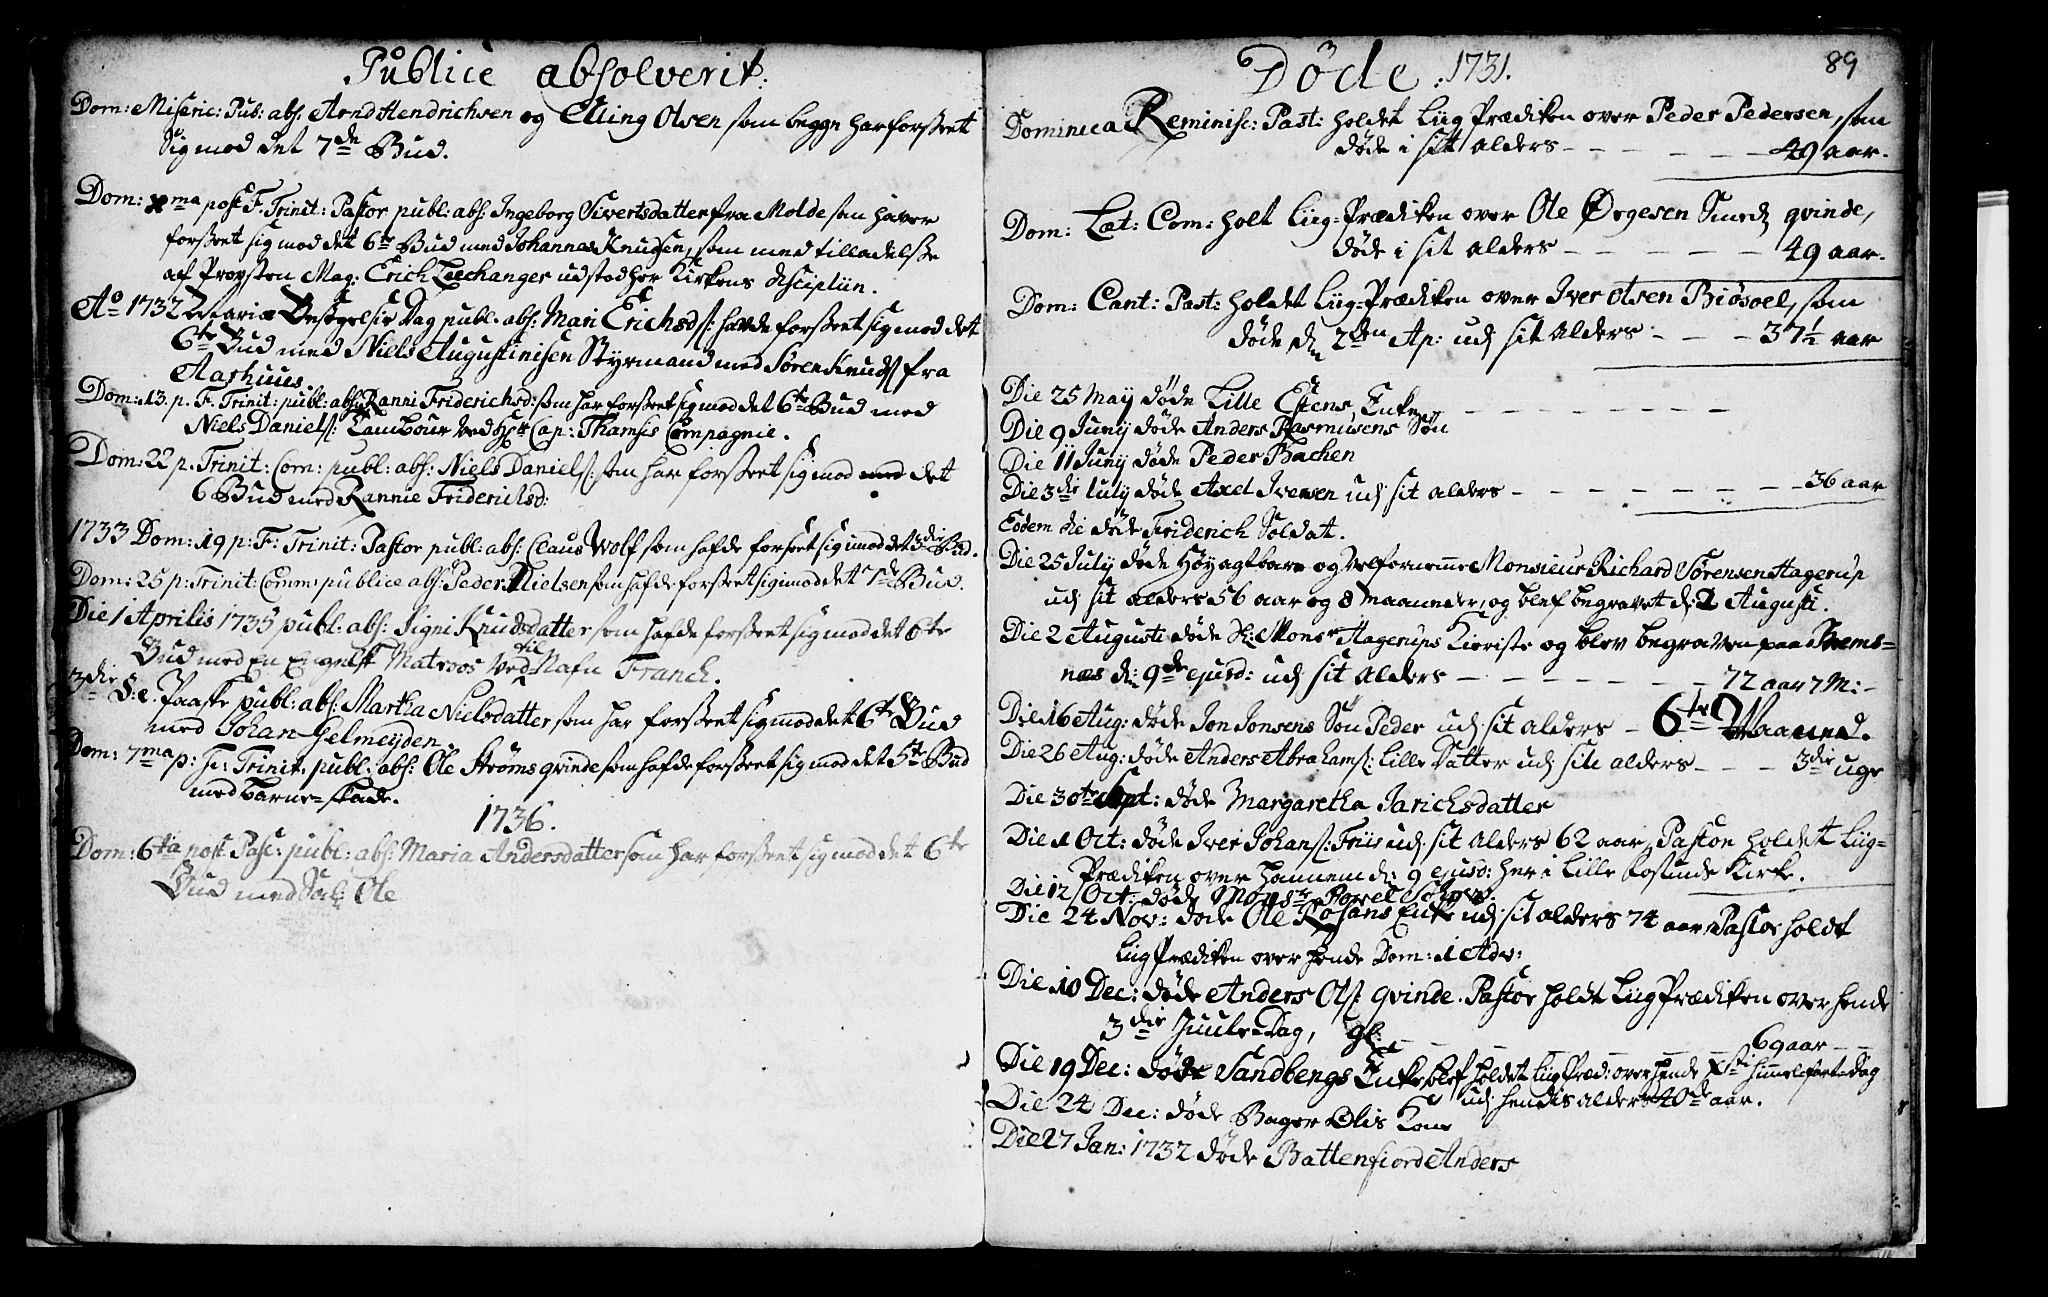 Publice absolverit:
Dom: Miseric: Pub: abs: Arnd Hendrichsen og Elling Olsen som begge har forseet
sig mod det 7de Bud.
Dom: Xma post F. Trinit: Pastor publ: abs: Ingeborg Sivertsdatter fra Molde som haver
forseet sig mod det 6te Bud med Johannes Knudsen, som med tilladelse
af Provsten Mag: Erich Leechanger udstod her Kirkens disciplin.
Ao 1732 Mariæ Besøgelsis Dag publ. abs: Mari Erichsd/: hafde forseet sig mod det
6te Bud med Niels Augustinisen Styrmand med Søren Knuds/ fra
Aarhuus.
Dom: 13. p. F. Trinit: publ: abs: Ranni Friderichsd: som har forseet sig mod det 6te Bud med
Niels Daniels/: Tambour ved Hr Cap: Thamsis Compagnie.
Dom: 22 p. Trinit: Com: publ: abs: Niels Daniels/: som har forseet sig mod det
6 Bud med Rannie Friderichsd:
1733 Dom: 19 p: F: Trinit: Pastor publ: abs: Claus Wolf som hafde forseet sig imod det 3die Bud.
Dom: 25 p: Trinit: Comm: publice abs: Peder Nielsen som hafde forseet sig imod det 7de Bud.
Die 1 Aprilis 1735 publ: abs: Signi Knudsdatter som hafde forseet sig mod det 6te
Bud med en Engelsk Matroos ved Nafn Franck.
3die S: e. Paaske publ: abs: Martha Nielsdatter, som har forseet sig mod det 6te Bud
med Johan Gelmeyden.
Dom: 7ma p: F: Trinit: publ: abs: Ole Strøms qvinde som hafde forseet sig mod det 5te Bud
med barne-skade.
1736.
Dom: 6ta post Pasc: publ: abs: Maria Andersdatter som har forseet sig mod det 6te
Bud med Ole
Døde 1731.
89
Dominica Reminisc: Past: holdet Liig Prædiken over Peder Pedersen, som
døde i sit alders - - - - - - 49 aar.
Dom: Læt: Com: holt Liig-Prædiken over Ole Ørgesen Smeds qvinde,
døde i sit alders - - - - - - 49 aar.
Dom: Cant: Past: holdet Liig-Prædiken over Iver Olsen Biøsoel, som
døde den 2den Ap: udj sit alders - - - 37½ aar
Die 25 May døde Lille Estens Enke - - - - - - - -
Die 9 Junij døde Anders Rasmusens Søn
Die 11 Junij døde Peder Bachen
Die 3die July døde Axel Iversen udj sit alders - - - - - - - 36 aar
Eodem die døde Friderich Soldat.
Die 25 July døde Høyagtbare og Velfornemme Monsieur Richard Sørensen Hagerup
udj sit alders 56 aar og 8 maaneder, og blef begravet d: 2 Augusti.
Die 2 Augusti døde Sl: Monsr Hagerups Kieriste og blev begraven paa Brems-
næs d: 9de ejusd: udj sit alders - - - - - - - 72 aar 7 M: -
Die 16 Aug: døde Jon Jonsens Søn Peder udj sit alders - 6te Maaned.
Die 26 Aug: døde Anders Abrahams/: Lille Datter udj sit alders - - - 3die uge
Die 30te Sept: døde Margaretha Jarichsdatter
Die 1 Oct: døde Iver Johans/: Friis udj sit alders 62 aar, Pastor holdet Liig-
Prædiken over hannem d: 9 ejusd: her i Lille Fosunds Kirke.
Die 12 Oct: døde Monsr Powel
Die 24 Nov: døde Ole Rosans Enke udj sit alders 74 aar, Pastor holdt
Liig Prædiken over hende Dom: 1 Adv:
Die 10 Dec: døde Anders Ols/: qvinde. Pastor holdt Liig Prædiken over hende
3die Juule-Dag, gl: - - - - - - 69 aar - -
Die 19 Dec: døde Sandbergs Enke blef holdet Liig Præd: over hende Xsti himmelfarts-Dag
udj hendis alders 40de aar.
Die 24 Dec: døde Bager Olis Kone
Die 27 Jan: 1732 døde Battenfiord Anders